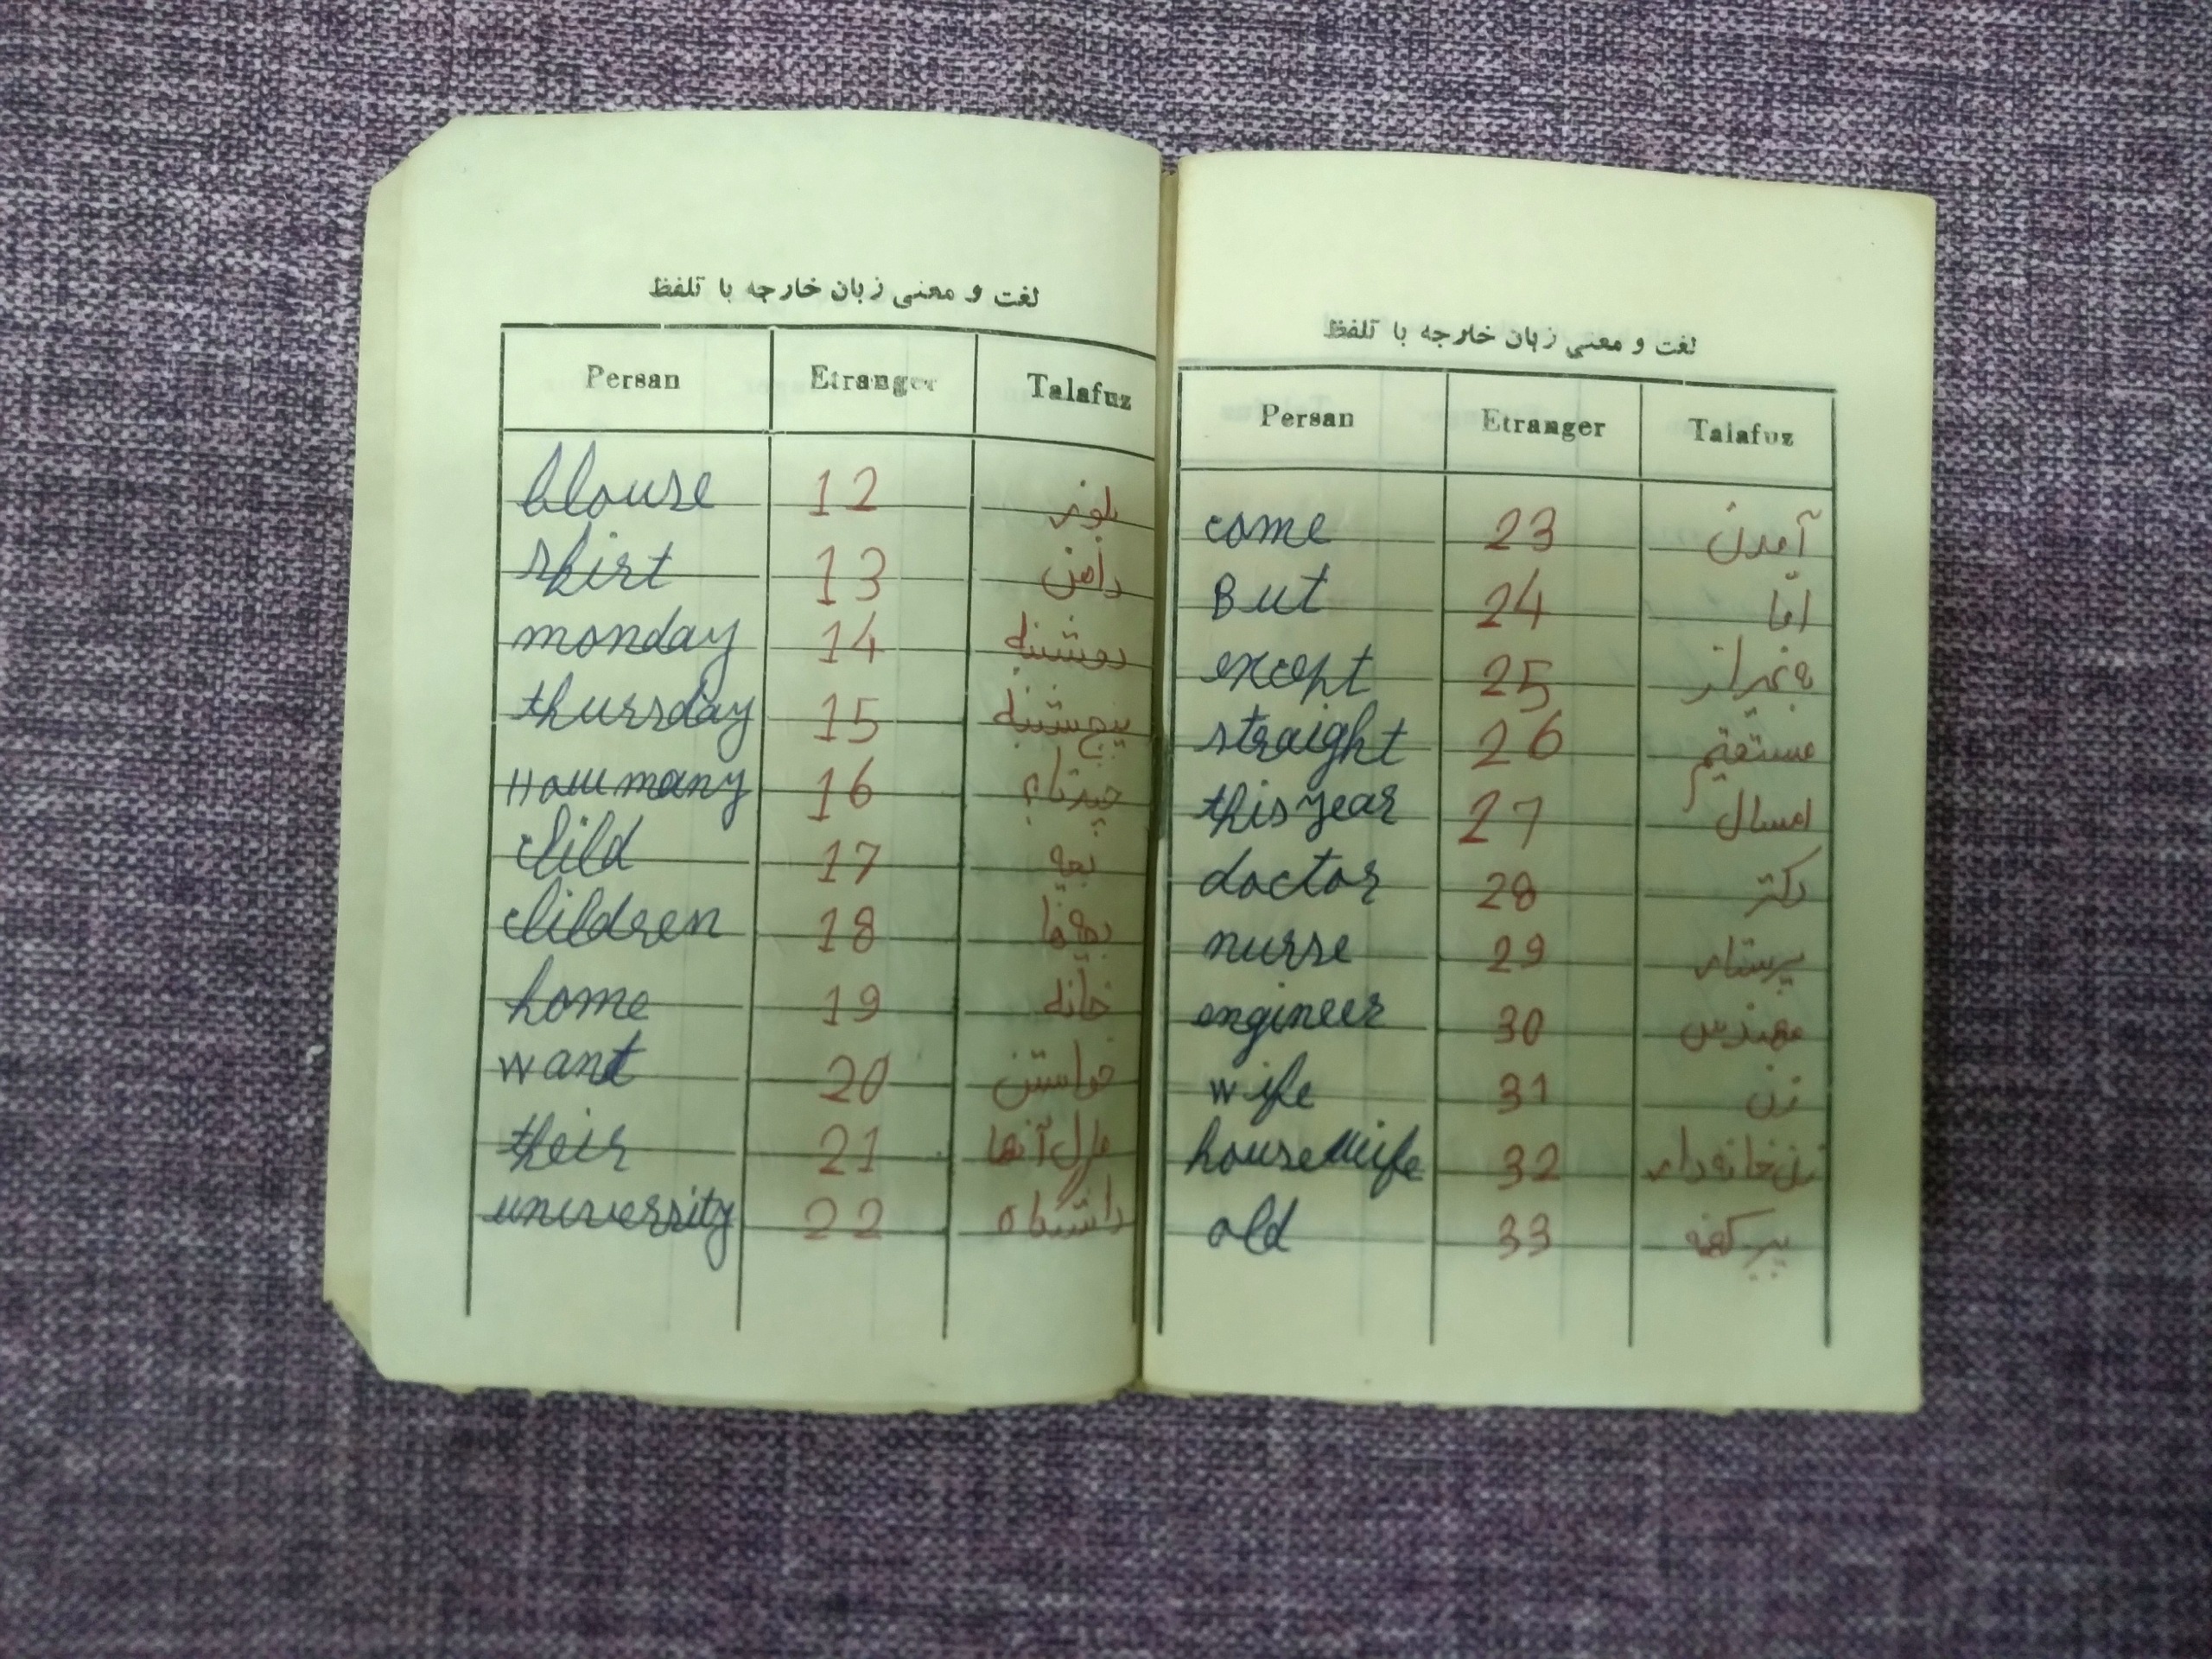 لغت و معنی زبان خارجه با تلفظ
Persan Etranger Talafuz
blouse 12 بلوز
skirt 13 دامن
monday 14 دوشنبه
thursday 15 پنجشنبه
How many 16 چندتا
child 17 بچه
children 18 بچه‌ها
home 19 خانه
want 20 خواستن
their 21 مال آنها
university 22 دانشگاه
لغت و معنی زبان خارجه با تلفظ
Persan Etranger Talafuz
come 23 آمدن
But 24 امّا
except 25 به غیر از
straight 26 مستقیم
this year 27 امسال
doctor 28 دکتر
nurse 29 پرستار
engineer 30 مهندس
wife 31 زن
housewife 32 زن خانه‌دار
old 33 پیر کهنه